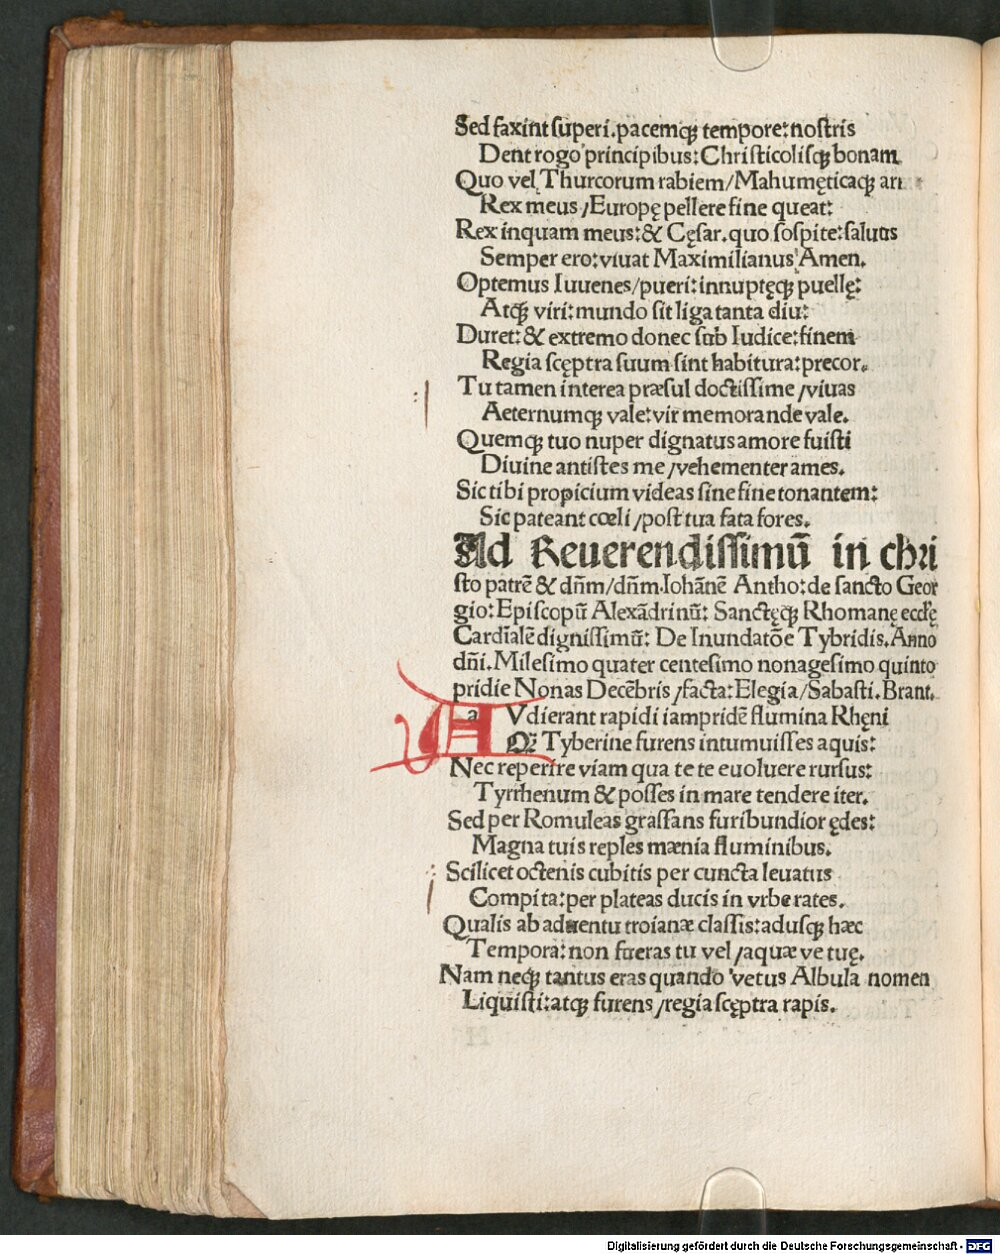 Sed faxint superi. pacemqꝫ tempore: nostris
Dent rogo principibus: Christicolisqꝫ bonam
Quo vel Thurcorum rabiem/Mahumęticaqꝫ
Rex meus/Europę pellere fine queat:
Rex inquam meus: & Cęsar. quo sospite: saluus
Semper ero: viuat Maximilianus Amen.
Optemus Iuuenes/pueri: innuptęqꝫ puellę:
Atqꝫ viri: mundo sit liga tanta diu:
Duret: & extremo donec sub Iudice: finem
Regia scęptra suum sint habitura: precor.
Tu tamen interea præsul doctissime/viuas
Aeternumqꝫ vale: vir memorande vale.
Quemqꝫ tuo nuper dignatus amore fuisti
Diuine antistes me/vehementer ames.
Sic tibi propicium videas sine fine tonantem:
Sic pateant cœli/post tua fata fores.
Ad Reuerendissimū in chri
sto patrē & dn̄m/dn̄m. Iohānē Antho: de sancto Geor
gio: Episcopū Alexādrinū: Sanctęqꝫ Rhomanę eccl̄ę
Cardīalē dignissimū: De Inundatōe Tybridis. Anno
dn̄i. Milesimo quater centesimo nonagesimo quinto
pridie Nonas Decēbris/facta: Elegia/Sabasti. Brant.
AVdierant rapidi iampridē flumina Rhęni
Qꝫ Tyberine furens intumuisses aquis:
Nec reperire viam qua te te euoluere rursus:
Tyrrhenum & posses in mare tendere iter.
Sed per Romuleas grassans furibundior ędes:
Magna tuis reples mænia fluminibus.
Scilicet octenis cubitis per cuncta leuatus
Compita: per plateas ducis in vrbe rates.
Qualis ab aduentu troianæ classis: adusqꝫ hæc
Tempora: non fueras tu vel/aquæ ve tuę.
Nam neqꝫ tantus eras quando vetus Albula nomen
Liquisti: atqꝫ furens/regia scęptra rapis.
Digitalisierung gefördert durch die Deutsche Forschungsgemeinschaft - DFG